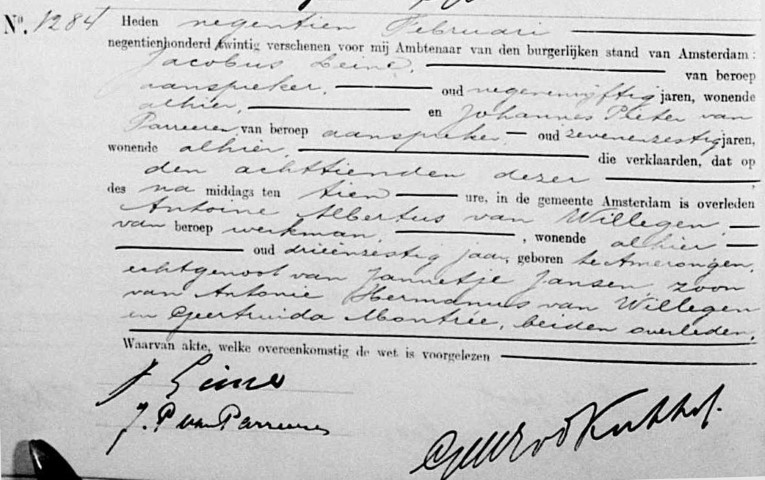 No. 1284 Heden negentien Februari
negentienhonderd twintig verschenen voor mij Ambtenaar van den burgerlijken stand van Amsterdam:
Jacobus Leine, van beroep
aanspreker, oud negenenvijftig jaren, wonende
alhier, en Johannes Pieter van
Parreren, van beroep aanspreker oud zevenenzestig jaren,
wonende alhier, die verklaarden, dat op
den achttienden dezer
des na middags ten tien ure, in de gemeente Amsterdam is overleden
Antoine Albertus van Willegen,
van beroep werkman, , wonende alhier
oud drieënzestig jaar, geboren te Amerongen,
echtgenoot van Jannetje Jansen, zoon
van Antonie Hermanus van Willegen
en Geertruida Montrée, beiden overleden.
Waarvan akte, welke overeenkomstig de wet is voorgelezen
J Leine
J. P van Parreren